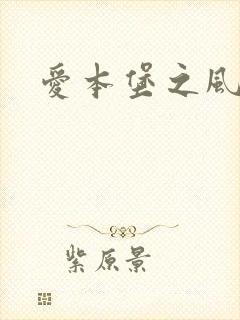 愛本堡之風
紫原景